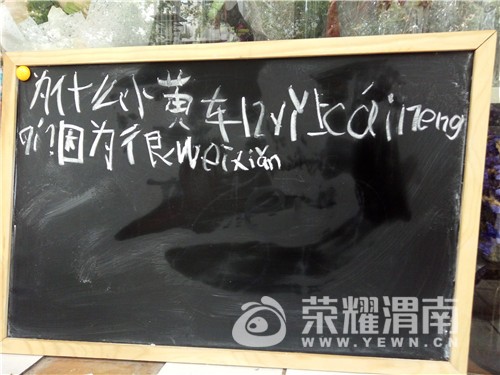 为什么小黄车12岁以上cáinéng
qí?因为很weixiǎn
荣耀渭南
WWW.YEWN.CN